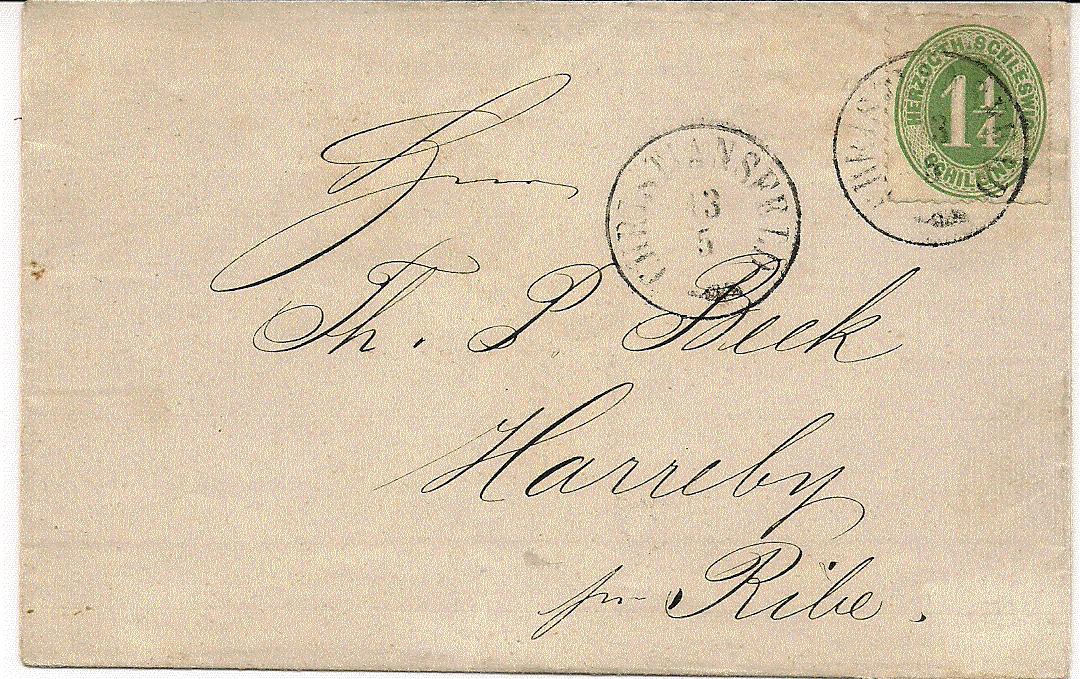 HERZOGTH. SCHLESWIG
1¼
SCHILLING
CHRISTIANSFELD
13
5
Herrn
Th. P. Beck
Harreby
pr Ribe.